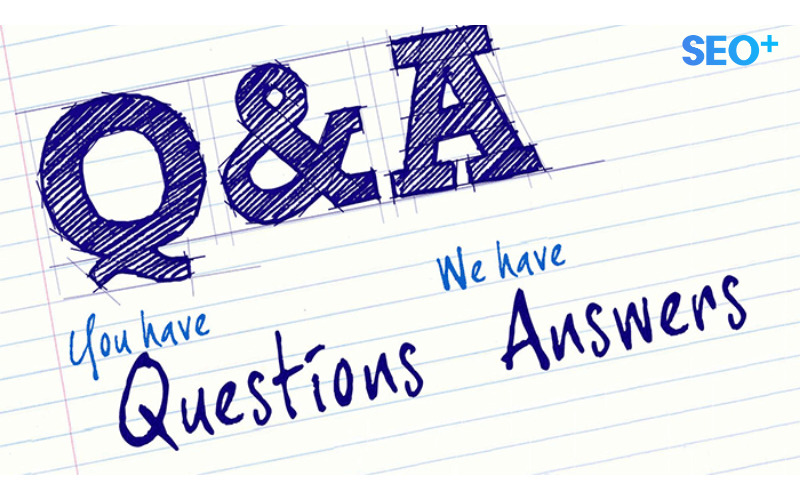 SEO+
Q&A
You have
Questions
We have
Answers